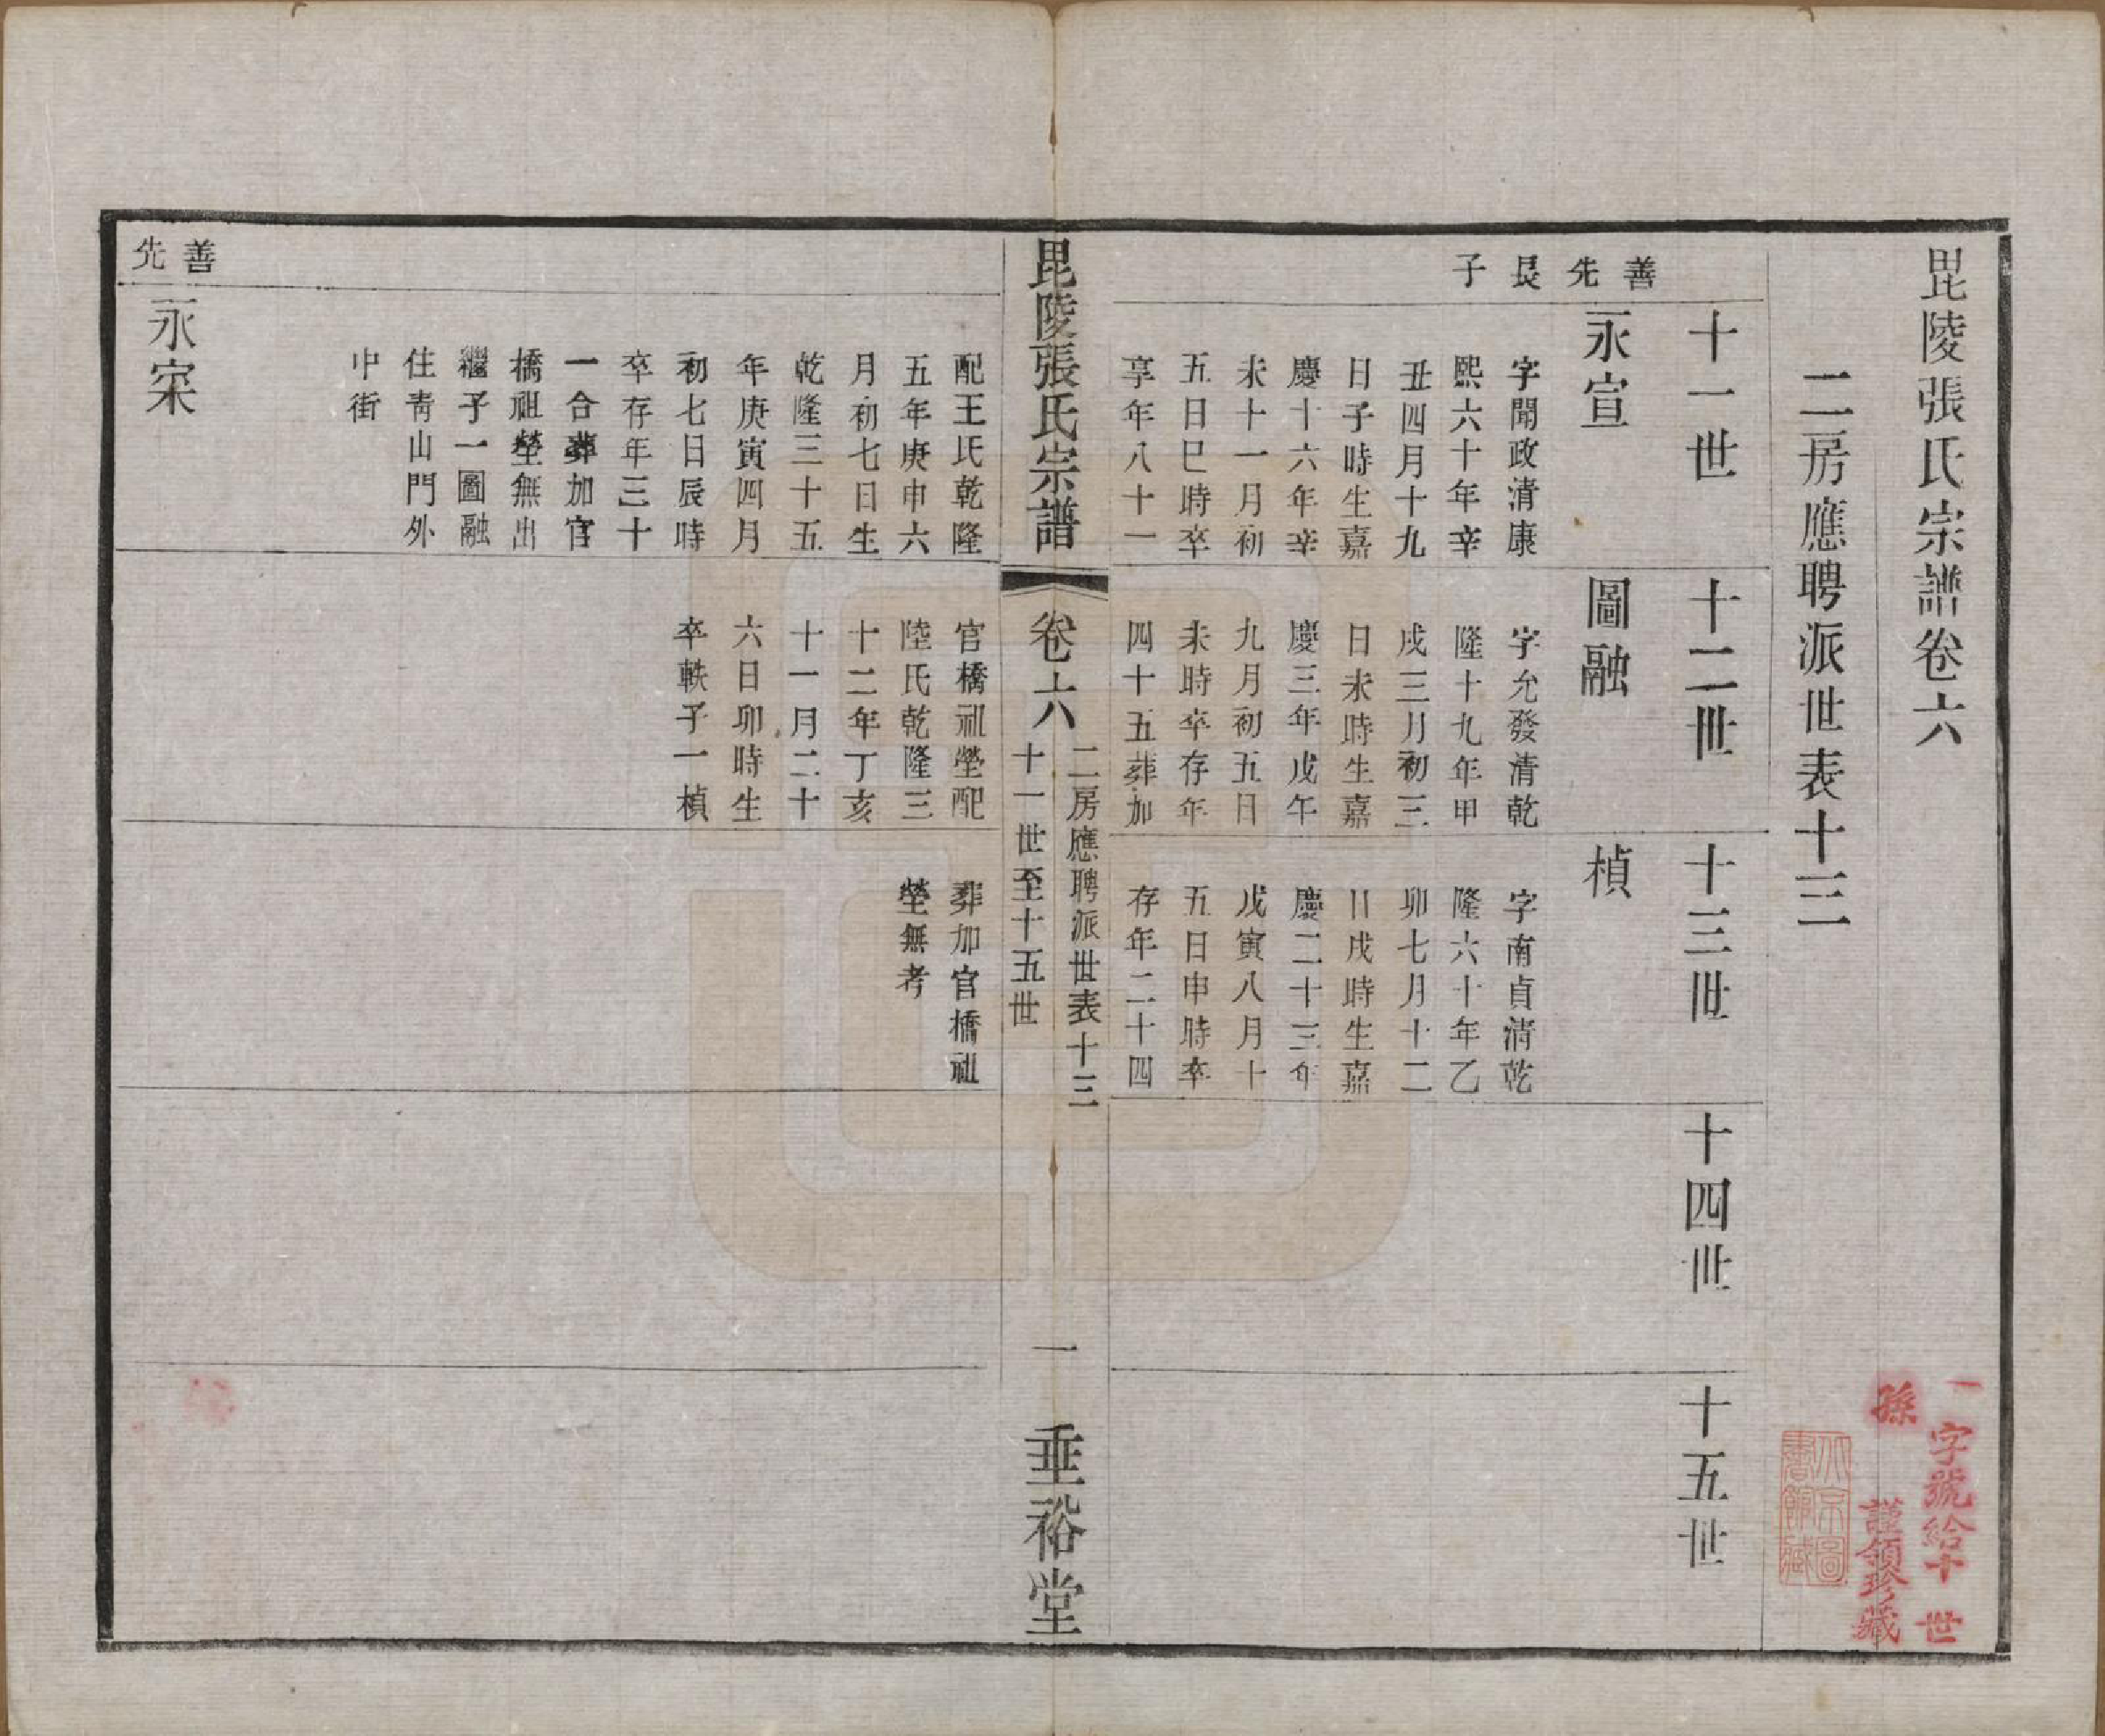 毘陵張氏宗譜卷六
二房應聘派世表十三
十一世
十二世
十三世
十四世
十五世
善先長子
永宣
字開政清康
熙六十年辛
丑四月十九
日子時生嘉
慶十六年辛
未十一月初
五日巳時卒
享年八十一
配王氏乾隆
五年庚申六
月初七日生
乾隆三十五
年庚寅四月
初七日辰時
卒存年三十
一合葬加官
橋祖塋無出
繼子一圖融
住靑山門外
中街
圖融
字允發清乾
隆十九年甲
戌三月初三
日未時生嘉
慶三年戊午
九月初五日
未時卒存年
四十五葬加
官橋祖塋配
陸氏乾隆三
十二年丁亥
十一月二十
六日卯時生
卒軼子一楨
楨
字南貞清乾
隆六十年乙
卯七月十二
日戌時生嘉
慶二十三年
戊寅八月十
五日申時卒
存年二十四
葬加官橋祖
塋無考
善先
永宷
毘陵張氏宗譜
卷六
二房應聘派世表十三
十一世至十五世
一
垂裕堂
一字號給十世
孫謹領珍藏